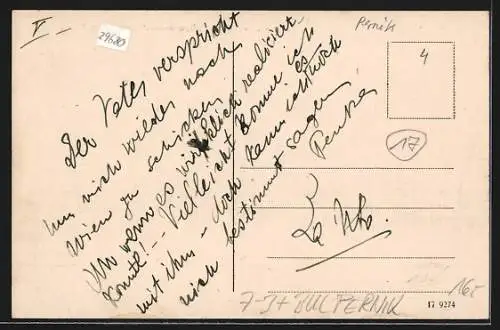 V
29680
Pernik
4
17
Der Vater verspricht
mich wieder nach
Wien zu schicken
Um wenn es wirklich realisiert
könnte! -- Vielleicht komme ich
mit ihm - doch kann ich es
nich bestimmt sagen
Penka
7-3+ BUL PERNIK
16
17 9274